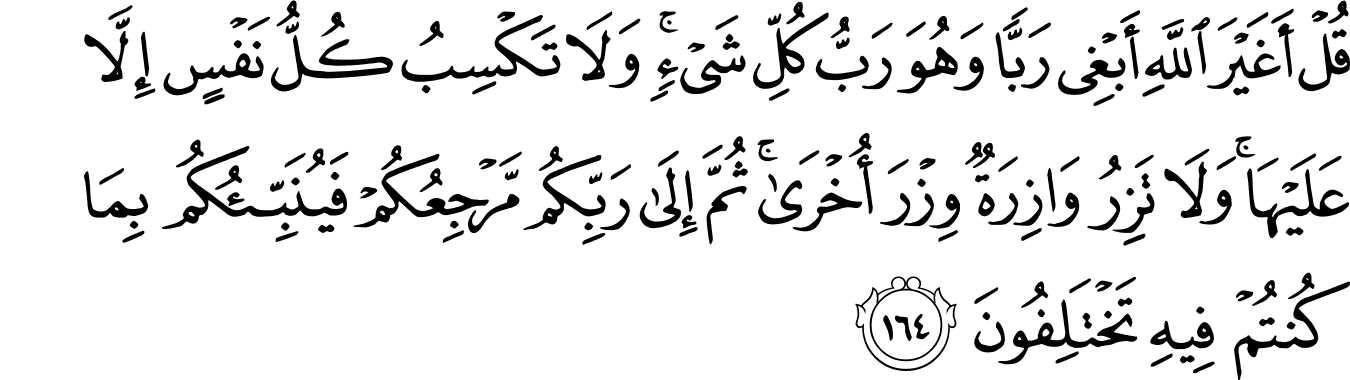 قُلْ أَغَيْرَ ٱللَّهِ أَبْغِى رَبًّا وَهُوَ رَبُّ كُلِّ شَىْءٍ ۚ وَلَا تَكْسِبُ كُلُّ نَفْسٍ إِلَّا
عَلَيْهَا ۚ وَلَا تَزِرُ وَازِرَةٌ وِزْرَ أُخْرَىٰ ۚ ثُمَّ إِلَىٰ رَبِّكُم مَّرْجِعُكُمْ فَيُنَبِّئُكُم بِمَا
كُنتُمْ فِيهِ تَخْتَلِفُونَ ١٦٤